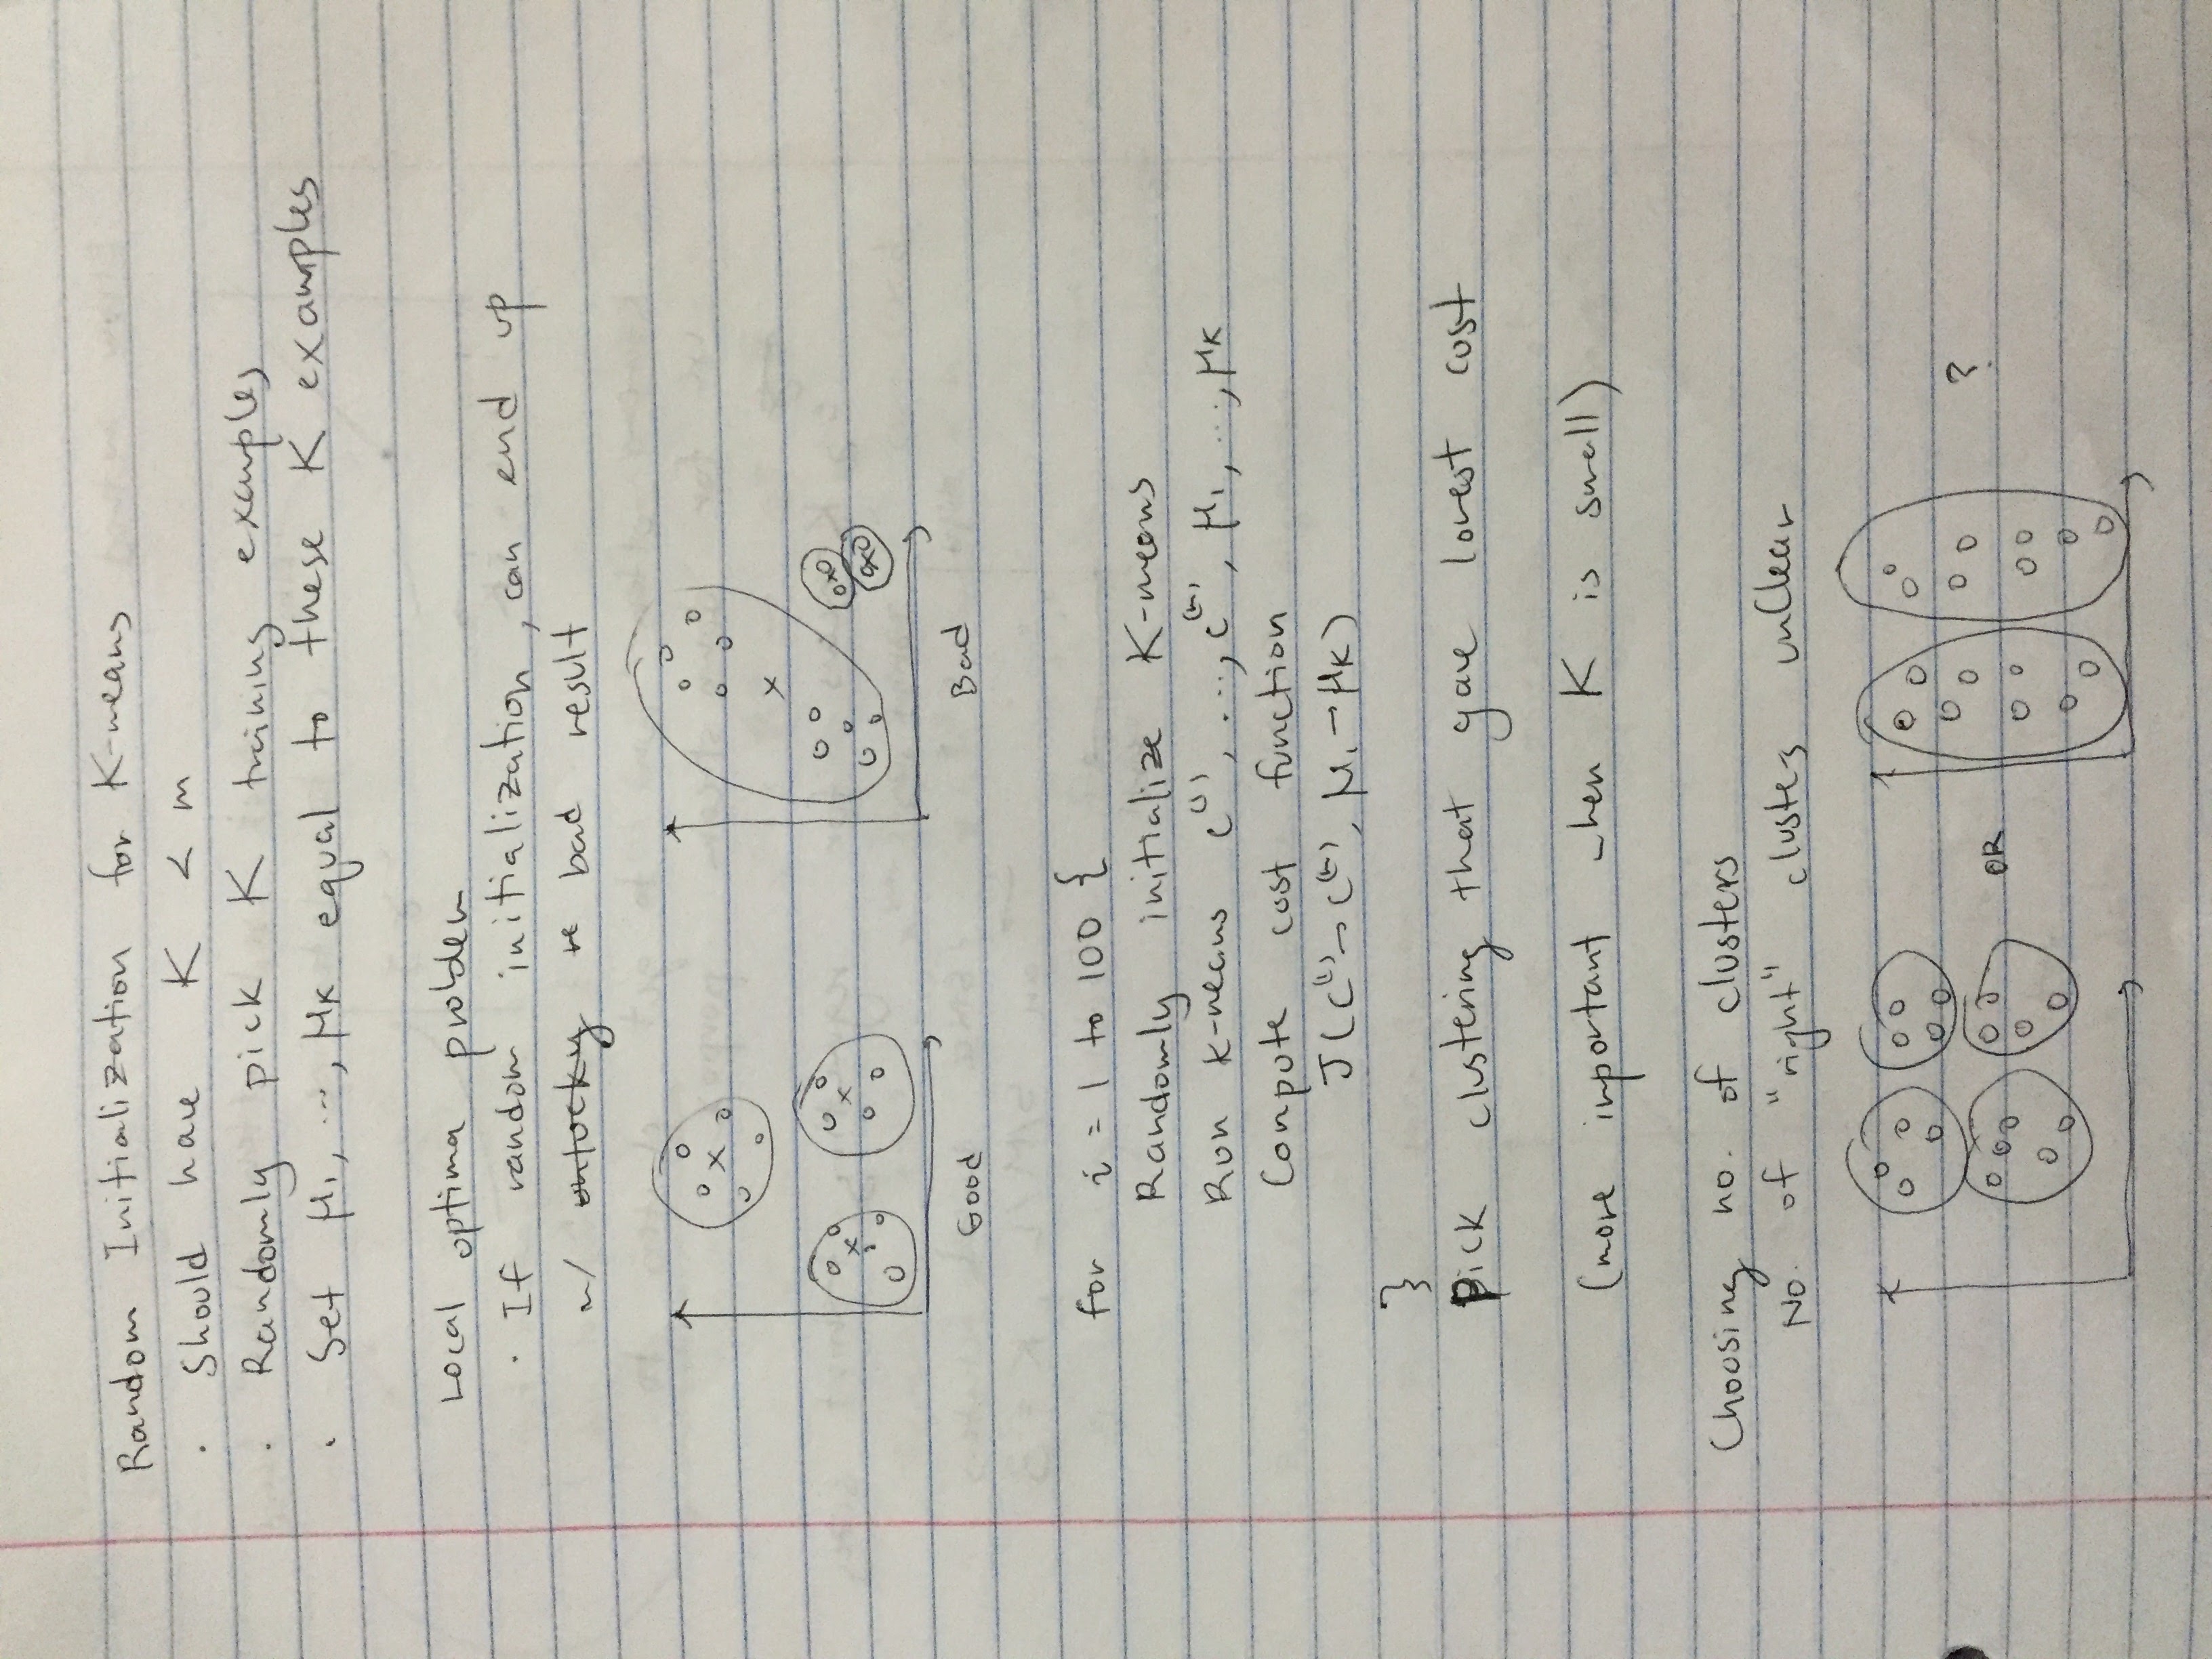 Random Initialization for K-means
· Should have K < m
· Randomly pick K training examples
· Set μ₁, ..., μK equal to these K examples
Local optima problem
· If random initialization, can end up
w/ unlucky re bad result
Good
Bad
for i = 1 to 100 {
Randomly initialize K-means
Run K-means c⁽¹⁾, ..., c⁽ᵐ⁾, μ₁, ..., μK
Compute cost function
J(c⁽¹⁾→c⁽ᵐ⁾, μ₁→μK)
}
Pick clustering that gave lowest cost
(more important when K is small)
Choosing no. of clusters
No. of "right" clusters unclear
OR
?